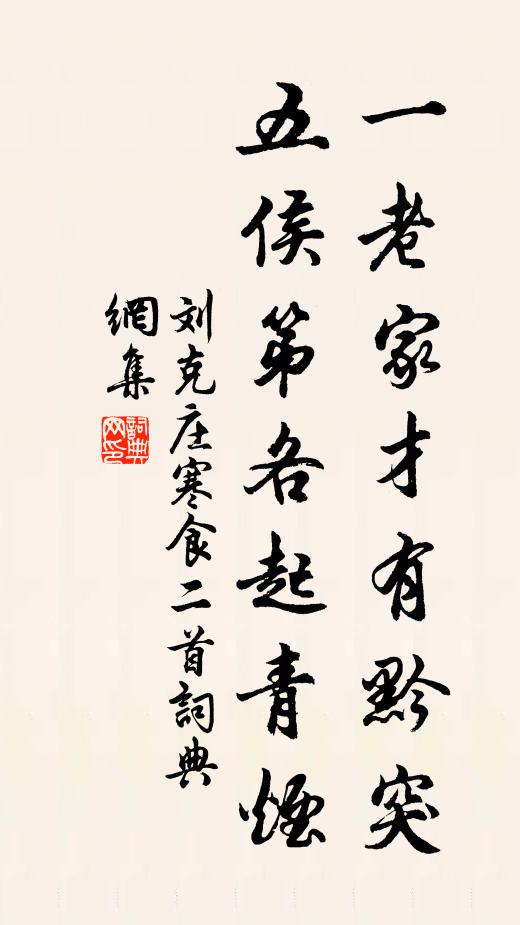 一老家才有黔突
五侯第各起青煙
刘克庄寒食二首詞典
網集
詞典
网印